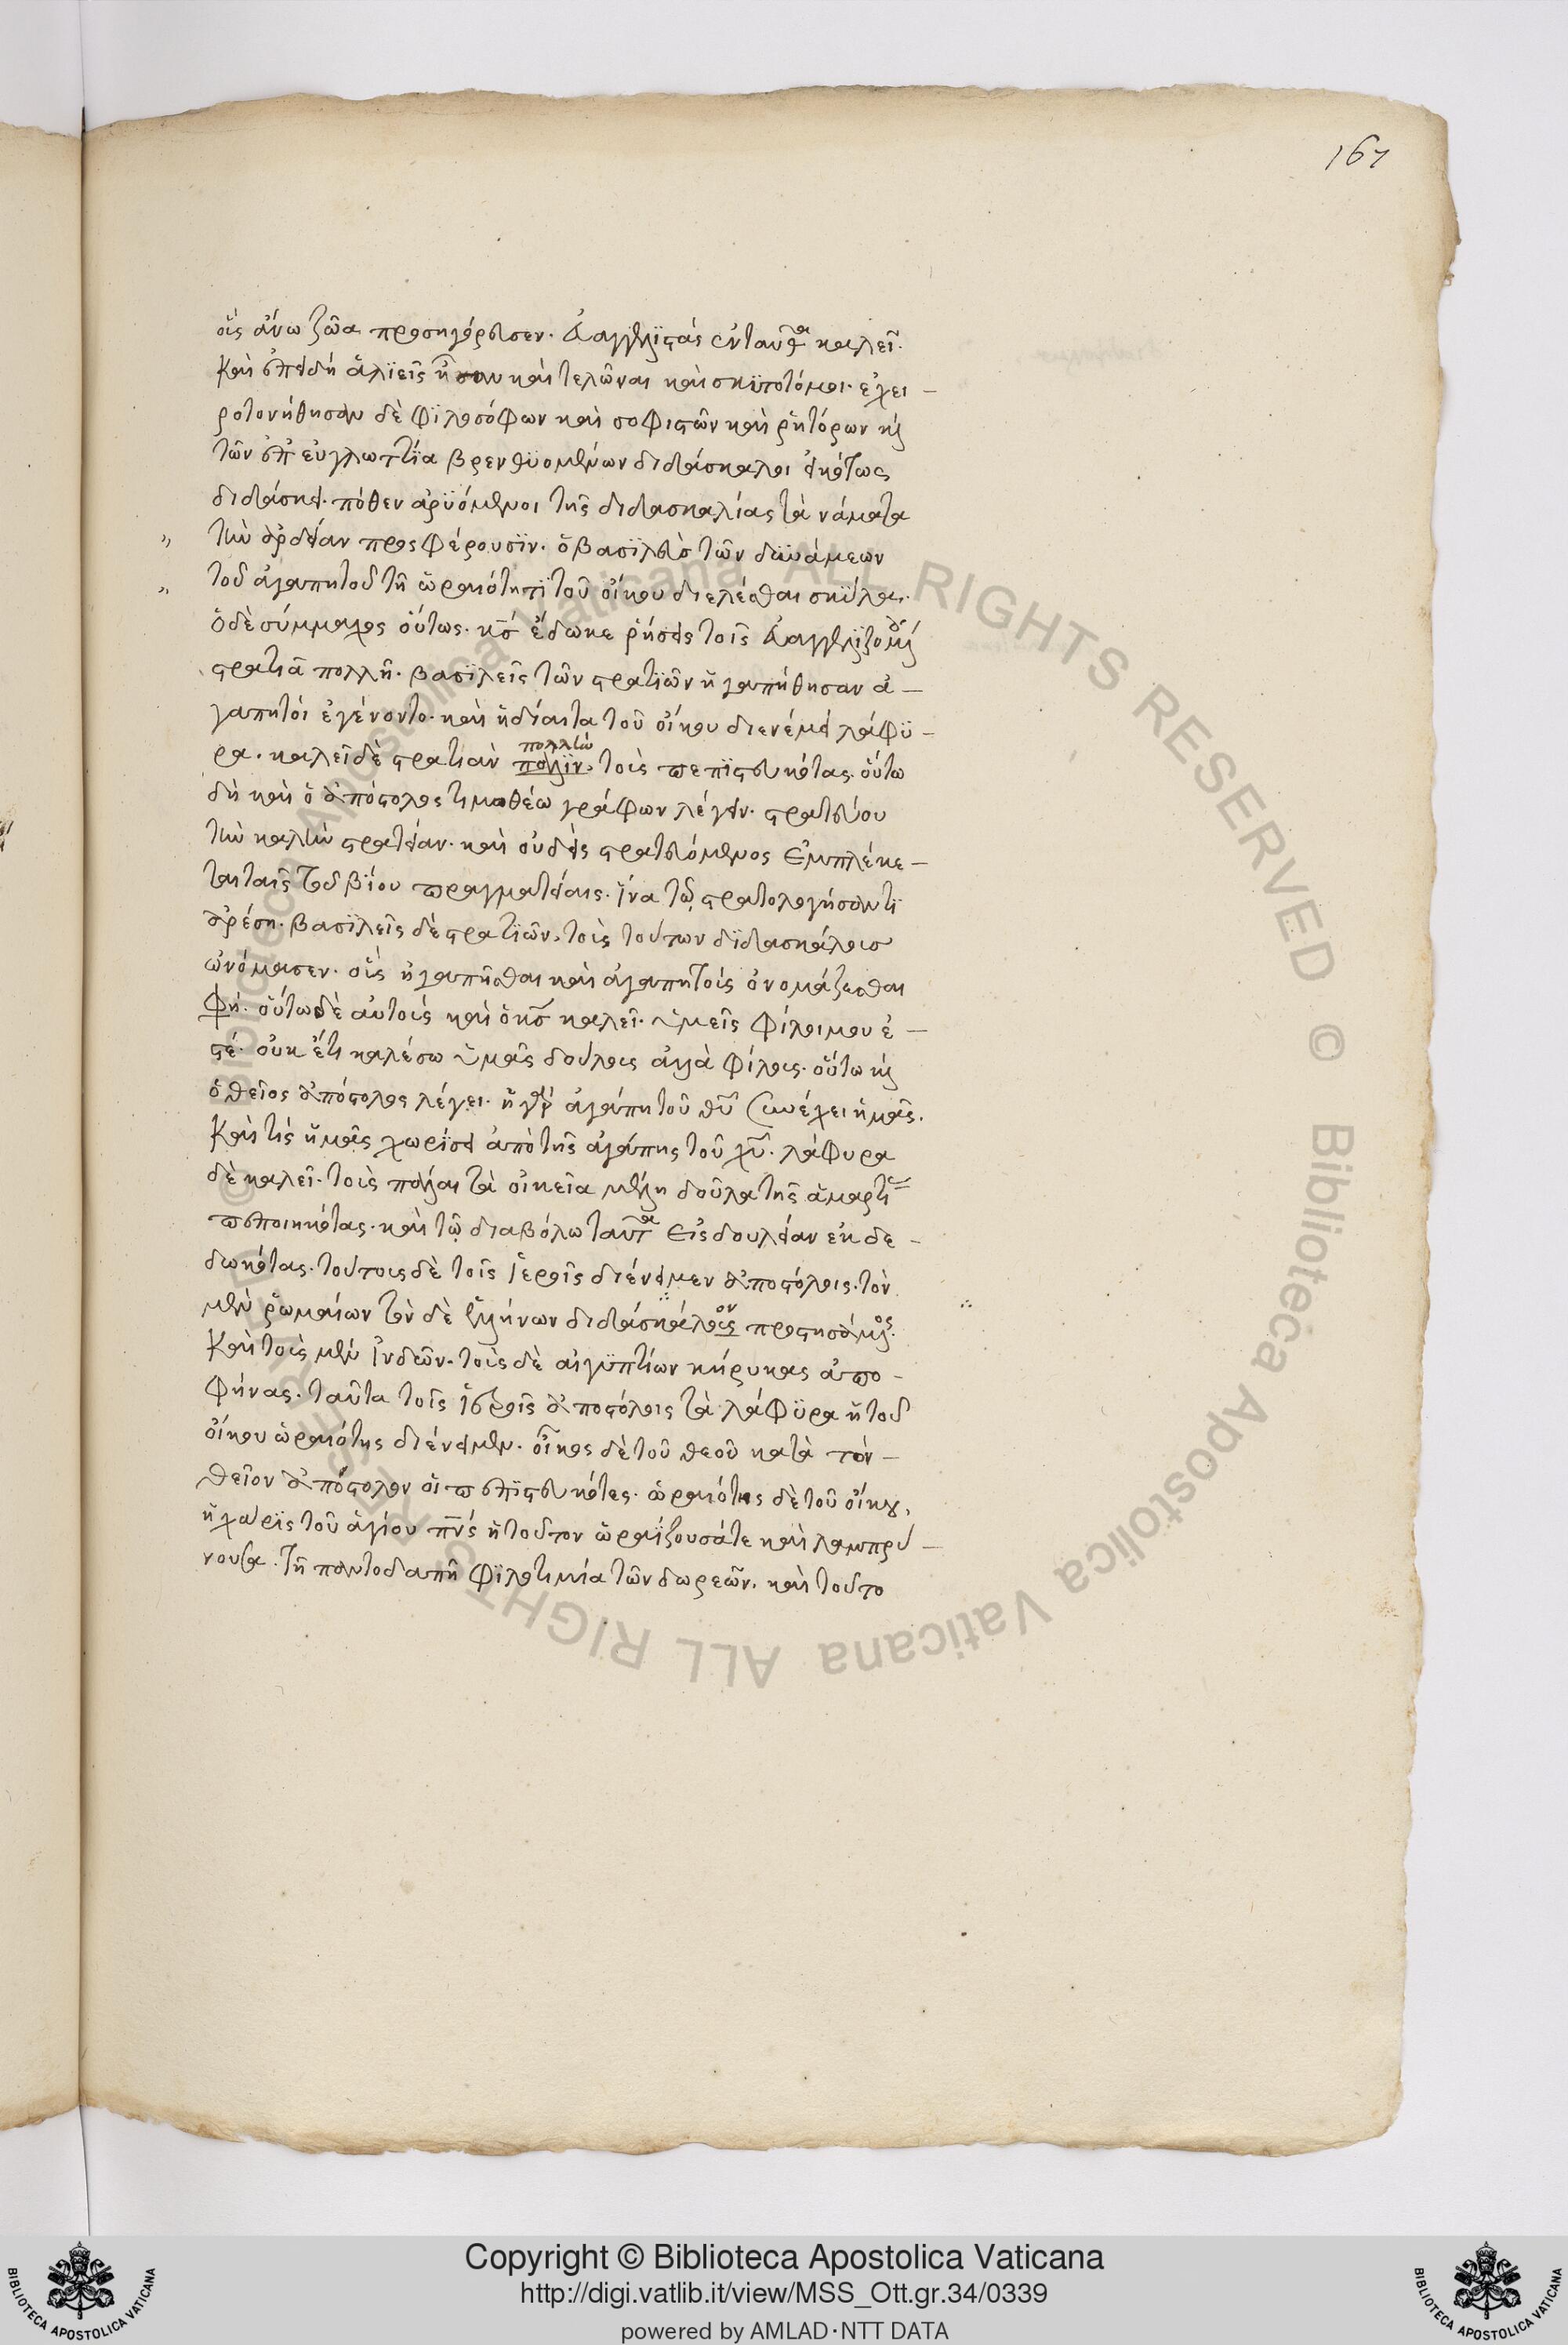 167
οὓς ἄνω ζῶα προσηγόρευσεν. εὐαγγελιστὰς ἐνταῦθα καλεῖ.
καὶ ἐπειδὴ ἁλιεῖς ἦσαν καὶ τελῶναι καὶ σκυτοτόμοι. ἐχει-
ροτονήθησαν δὲ φιλοσόφων καὶ σοφιστῶν καὶ ῥητόρων καὶ
τῶν ἐπ' εὐγλωττία βρενθυομένων διδάσκαλοι εἰκότως
διδάσκει. πόθεν ἀρυόμενοι τῆς διδασκαλίας τὰ νάματα
„ τὴν ἀρδείαν προσφέρουσιν. ὁ βασιλεὺς τῶν δυνάμεων
„ τοῦ ἀγαπητοῦ τῆ ὡραιότητι τοῦ οἴκου διελέσθαι σκῦλα.
ὁ δὲ σύμμαχος οὕτως. κς ἔδωκε ῥήσεις τοῖς εὐαγγελιζομένοις
στρατιᾶ πολλῆ. βασιλεῖς τῶν στρατιῶν ἠγαπήθησαν ἀ-
γαπητοὶ ἐγένοντο. καὶ ἡ δίαιτα τοῦ οἴκου διενέμει λάφυ-
πολλὴν
ρα. καλεῖ δὲ στρατιὰν πάλιν. τοὺς πεπιστευκότας. οὕτω
δὴ καὶ ὁ ἀπόστολος τιμοθέω γράφων λέγει. στρατεύου
τὴν καλὴν στρατείαν. καὶ οὐδεὶς στρατευόμενος ἐμπλέκε-
ται ταῖς τοῦ βίου πραγματείαις. ἵνα τῷ στρατολογήσαντι
ἀρέση. βασιλεῖς δὲ στρατιῶν. τοὺς τούτων διδασκάλους
ὠνόμασεν. οὓς ἠγαπῆσθαι καὶ ἀγαπητοὺς ὀνομάζεσθαι
φη. οὕτω δὲ αὐτοὺς καὶ ὁ κς καλεῖ. ὑμεῖς φίλοι μου ἐ-
στέ. οὐκ ἔτι καλέσω ὑμᾶς δούλους ἀλλὰ φίλους. οὕτω καὶ
ὁ θεῖος ἀπόστολος λέγει. ἡ γὰρ ἀγάπη τοῦ θυ συνέχει ἡμᾶς.
καὶ τίς ἡμᾶς χωρίσει ἀπὸ τῆς ἀγάπης τοῦ χυ. λάφυρα
δὲ καλεῖ. τοὺς πάλαι τὰ οἰκεῖα μέλη δοῦλα τῆς ἁμαρτίας
πεποιηκότας. καὶ τῷ διαβόλω ταῦτα εἰς δουλείαν ἐκδε-
δωκότας. τούτους δὲ τοῖς ἱεροῖς διένειμεν ἀποστόλοις. τὸν
μὲν ῥωμαίων τὸν δὲ ἑλλήνων διδάσκάλους ον προστησάμενος.
καὶ τοὺς μὲν ἰνδῶν. τοὺς δὲ αἰγυπτίων κήρυκας ἀπο-
φήνας. ταῦτα τοῖς ἱεροῖς ἀποστόλοις τὰ λάφυρα ἡ τοῦ
οἴκου ὡραιότης διένειμεν. οἶκος δὲ τοῦ θεοῦ κατὰ τὸν-
θεῖον ἀπόστολον οἱ πεπιστευκότες. ὡραιότης δὲ τοῦ οἴκου,
ἡ χάρις τοῦ ἁγίου πνς ἡ τοῦτον ὡραΐζουσά τε καὶ λαμπρύ-
νουσα. τῆ παντοδαπῆ φιλοτιμία τῶν δωρεῶν. καὶ τοῦτο
Copyright © Biblioteca Apostolica Vaticana
http://digi.vatlib.it/view/MSS_Ott.gr.34/0339
powered by AMLAD·NTT DATA
BIBLIOTECA APOSTOLICA VATICANA
BIBLIOTECA APOSTOLICA VATICANA
© Biblioteca Apostolica Vaticana ALL RIGHTS RESERVED © Biblioteca Apostolica Vaticana ALL RIGHTS RESERVED